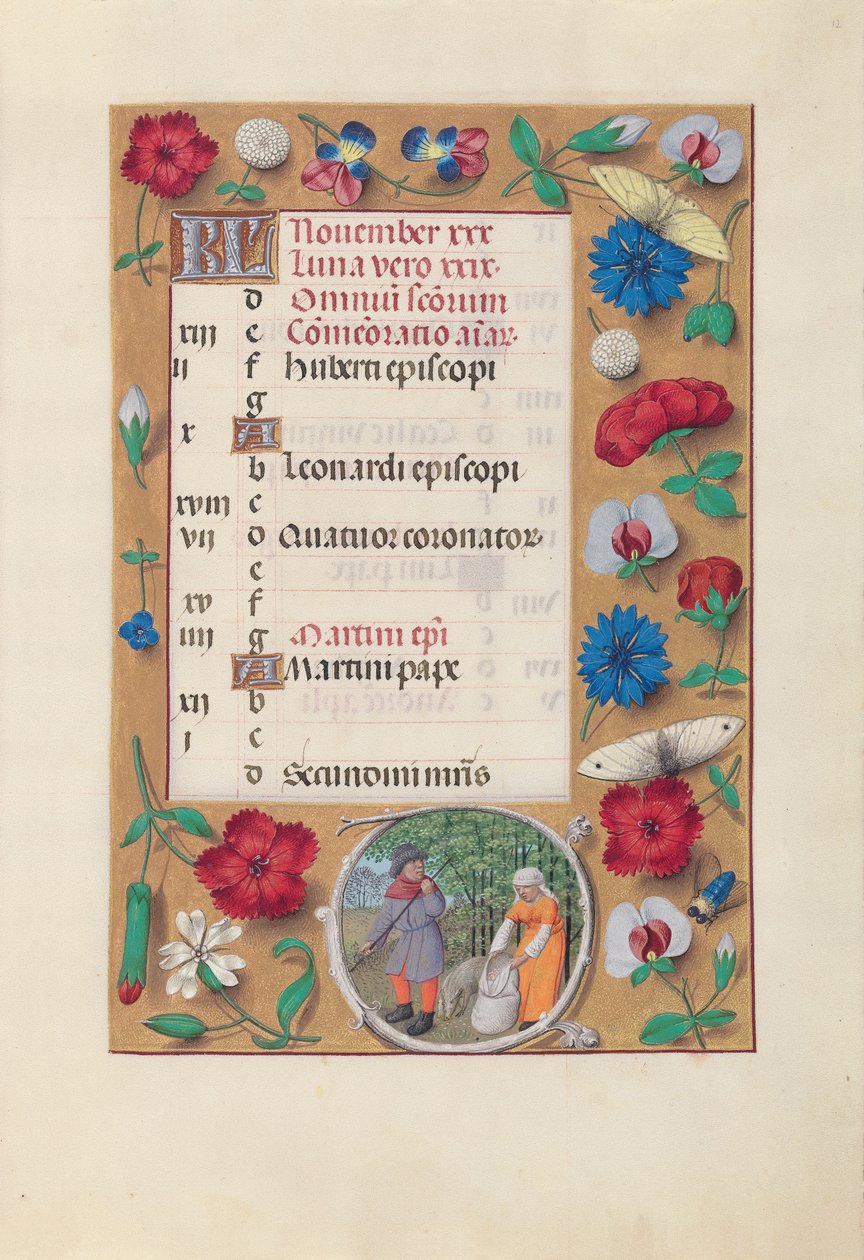 12
KL Nouember xxx
Luna vero xxix.
d Omniū ſcōrum
xiij e Cōmēoratio aīar.
ij f Huberti epiſcopi
g
x A
b Leonardi epiſcopi
xviij c
vij d Quatuor coronator.
e
xv f
iiij g Martini ep̄i
A Martini pape
xij b
j c
d Secundini mr̄is